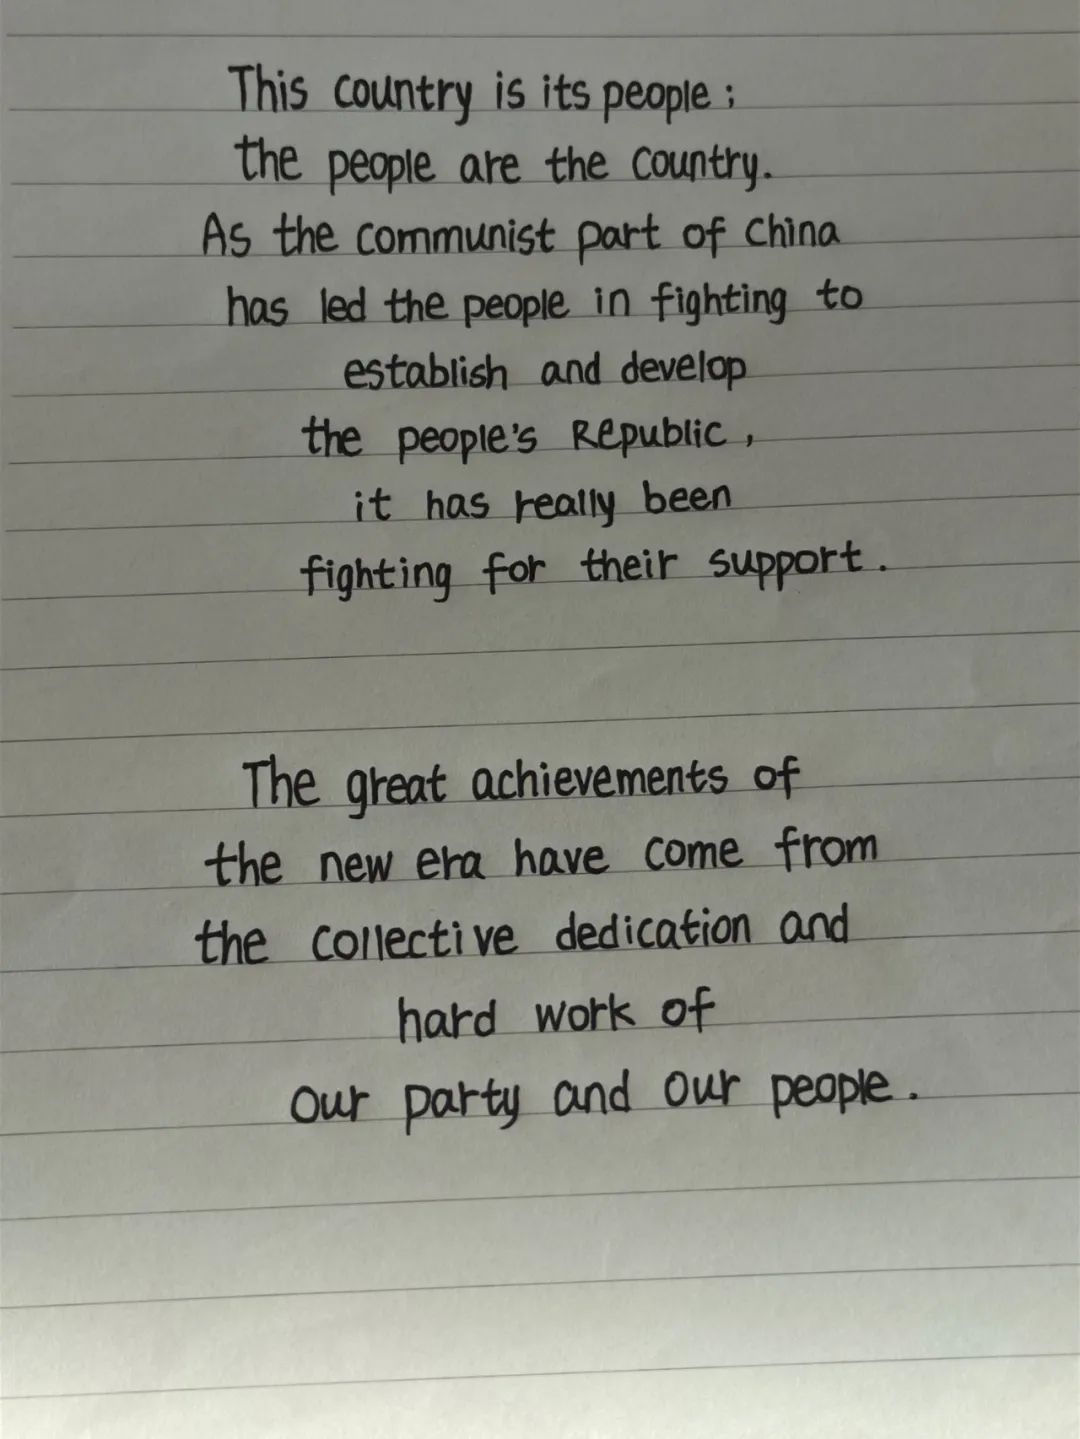 This country is its people;
the people are the country.
As the communist part of China
has led the people in fighting to
establish and develop
the people's Republic,
it has really been
fighting for their support.
The great achievements of
the new era have come from
the collective dedication and
hard work of
our party and our people.